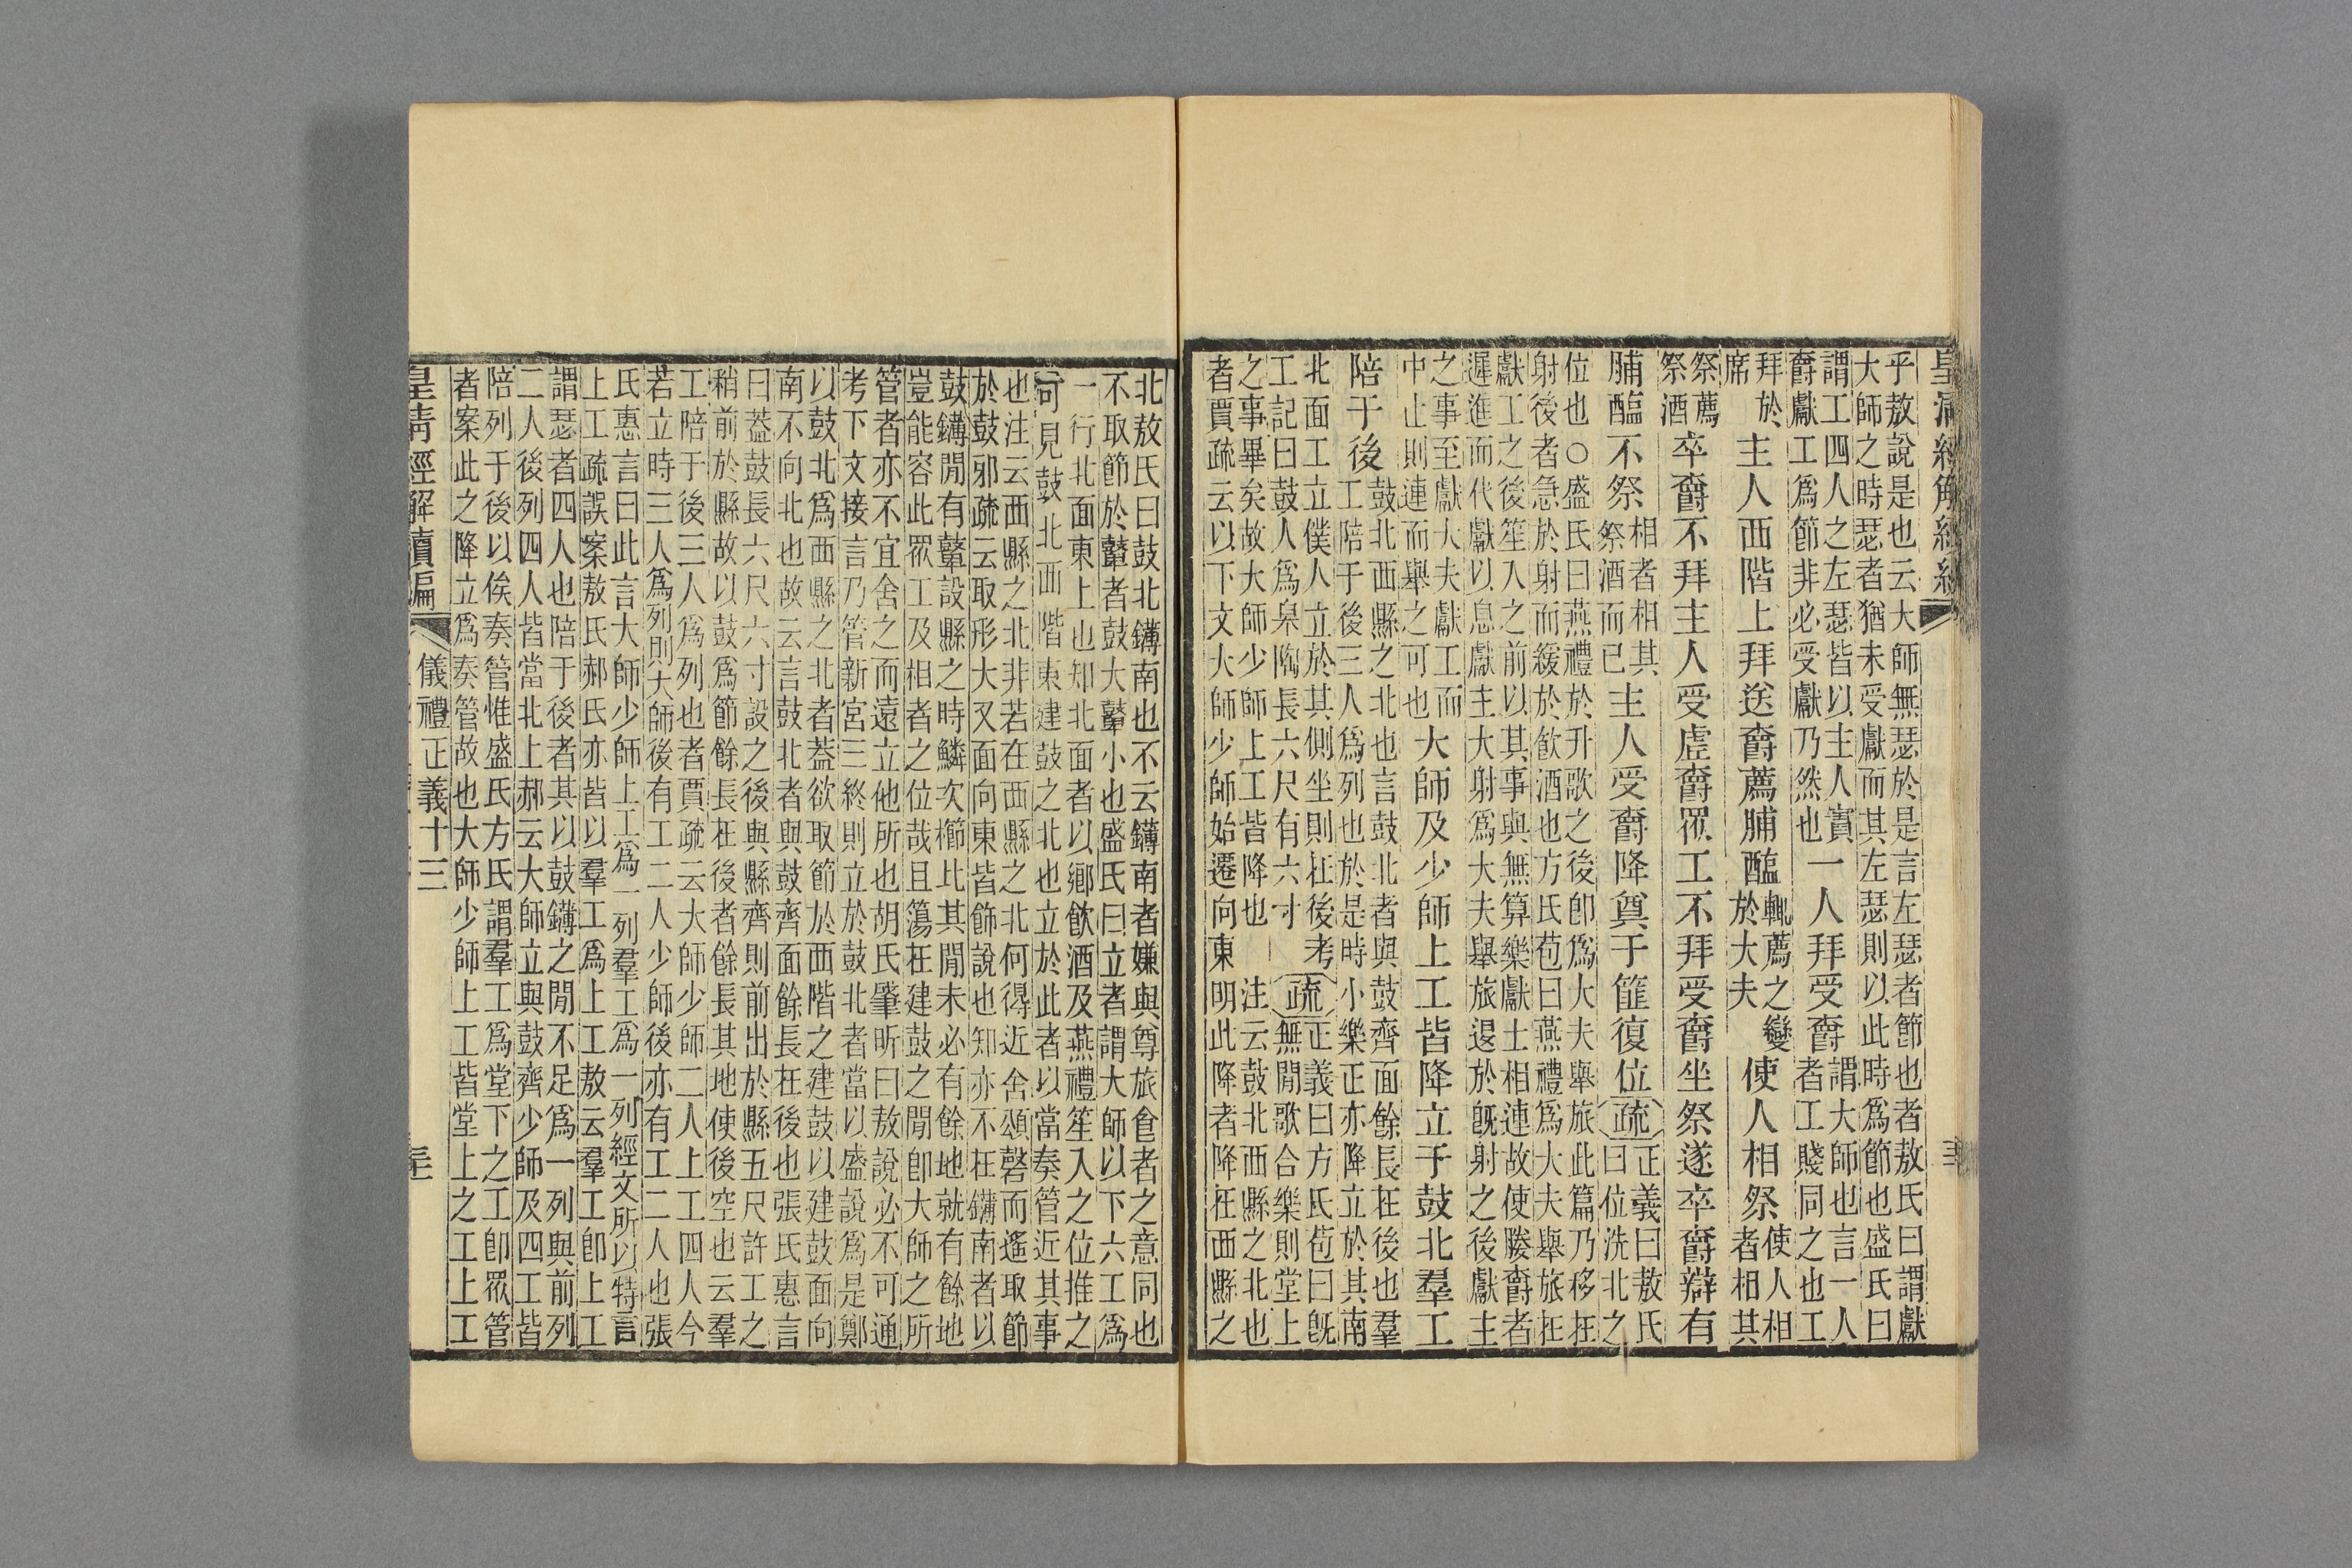 乎敖說是也云大師無瑟於是言左瑟者節也者敖氏曰謂獻
大師之時瑟者猶未受獻而其左瑟則以此時爲節也盛氏曰
謂工四人之左瑟皆以主人賓一人拜受爵謂大師也言一人
爵獻工爲節非必受獻乃然也者工賤同之也工
拜於席主人西階上拜送爵薦脯醢輒薦之變於大夫使人相祭使人相者相其
祭薦祭酒卒爵不拜主人受虛爵眾工不拜受爵坐祭遂卒爵辯有
脯醢不祭相者相其祭酒而已主人受爵降奠于篚復位疏正義曰敖氏曰位洗北之
位也○盛氏曰燕禮於升歌之後卽爲大夫舉旅此篇乃移在
射後者急於射而緩於飮酒也方氏苞曰燕禮爲大夫舉旅在
獻工之後笙入之前以其事與無算樂獻士相連故使媵爵者
遲進而代獻以息獻主大射爲大夫舉旅退於旣射之後獻主
之事至獻大夫獻工而
中止則連而舉之可也大師及少師上工皆降立于鼓北羣工
陪于後鼓北西縣之北也言鼓北者與鼓齊面餘長在後也羣
工陪于後三人爲列也於是時小樂正亦降立於其南
北面工立僕人立於其側坐則在後考
工記曰鼓人爲皋陶長六尺有六寸疏正義曰方氏苞曰旣無閒歌合樂則堂上
之事畢矣故大師少師上工皆降也注云鼓北西縣之北也
者賈疏云以下文大師少師始遷向東明此降者降在西縣之
北敖氏曰鼓北鑮南也不云鑮南者嫌與尊旅食者之意同也
不取節於鼙者鼓大鼙小也盛氏曰立者謂大師以下六工爲
一行北面東上也知北面者以鄉飮酒及燕禮笙入之位推之
可見鼓北西階東建鼓之北也立於此者以當奏管近其事
也注云西縣之北非若在西縣之北何得近舍頌磬而遙取節
於鼓邪疏云取形大又面向東皆飾說也知亦不在鑮南者以
鼓鑮閒有鼙設縣之時鱗次櫛比其閒未必有餘地就有餘地
豈能容此眾工及相者之位哉且簜在建鼓之閒卽大師之所
管者亦不宜舍之而遠立他所也胡氏肇昕曰敖說必不可通
考下文接言乃管新宮三終則立於鼓北者當以盛說爲是鄭
以鼓北爲西縣之北者蓋欲取節於西階之建鼓以建鼓面向
南不向北也故云言鼓北者與鼓齊面餘長在後也張氏惠言
曰葢鼓長六尺六寸設之後與縣齊則前出於縣五尺許工之
稍前於縣故以鼓爲節餘長在後者餘長其地使後空也云羣
工陪于後三人爲列也者賈疏云大師少師二人上工四人今
若立時三人爲列則大師後有工二人少師後亦有工二人也張
氏惠言曰此言大師少師上工爲一列羣工爲一列經文所以特言
上工疏誤案敖氏郝氏亦皆以羣工爲上工敖云羣工卽上工
謂瑟者四人也陪于後者其以鼓鑮之閒不足爲一列與前列
二人後列四人皆當北上郝云大師立與鼓齊少師及四工皆
陪列于後以俟奏管惟盛氏方氏謂羣工爲堂下之工卽眾管
者案此之降立爲奏管故也大師少師上工皆堂上之工上工
皇清經解續編 儀禮正義十三